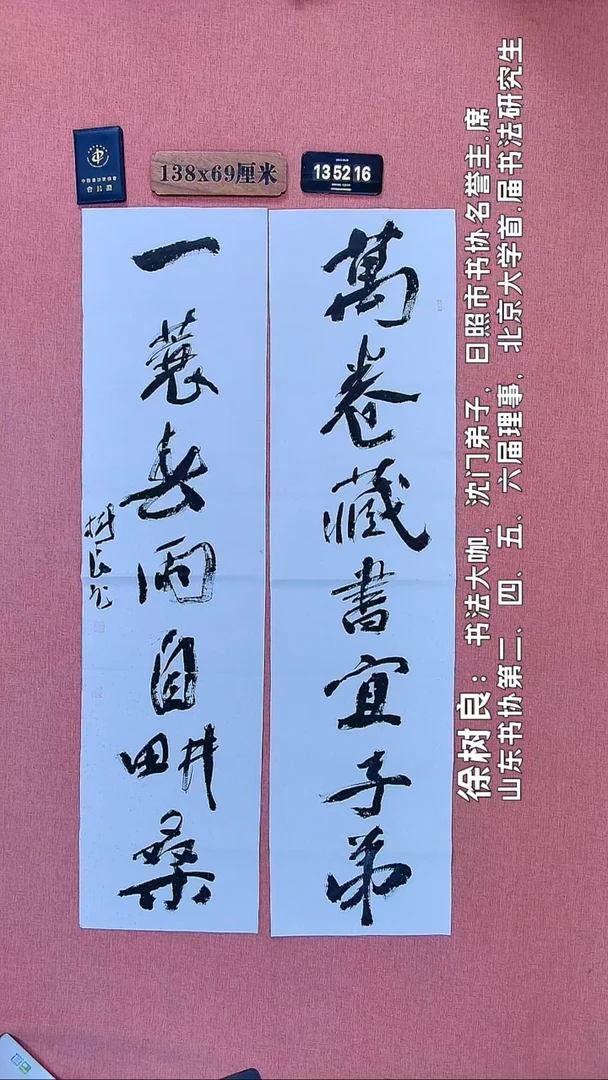 中国书法家协会
會員證
138x69厘米
135216
萬卷藏書宜子弟
一蓑春雨自畊桑
樹良书
徐树良：书法大咖，沈门弟子，日照市书协名誉主.席
山东书协第二、四、五、六届理事，北京大学首.届书法研究生